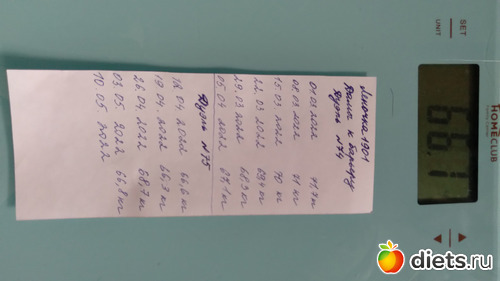 Леночка 1901
к барьеру
Дуэль №74
01.03.2022 71,7 кг
08.03.2022 71 кг
15.03.2022 70 кг
22.03.2022 69,4 кг
29.03.2022 68,9 кг
05.04.2022 67,1 кг
Дуэль №75
12.04.2022 66,6 кг
19.04.2022 66,3 кг
26.04.2022 68,7 кг
03.05.2022 66,8 кг
10.05.2022
SET
UNIT
66.1
HOMECLUB
diets.ru